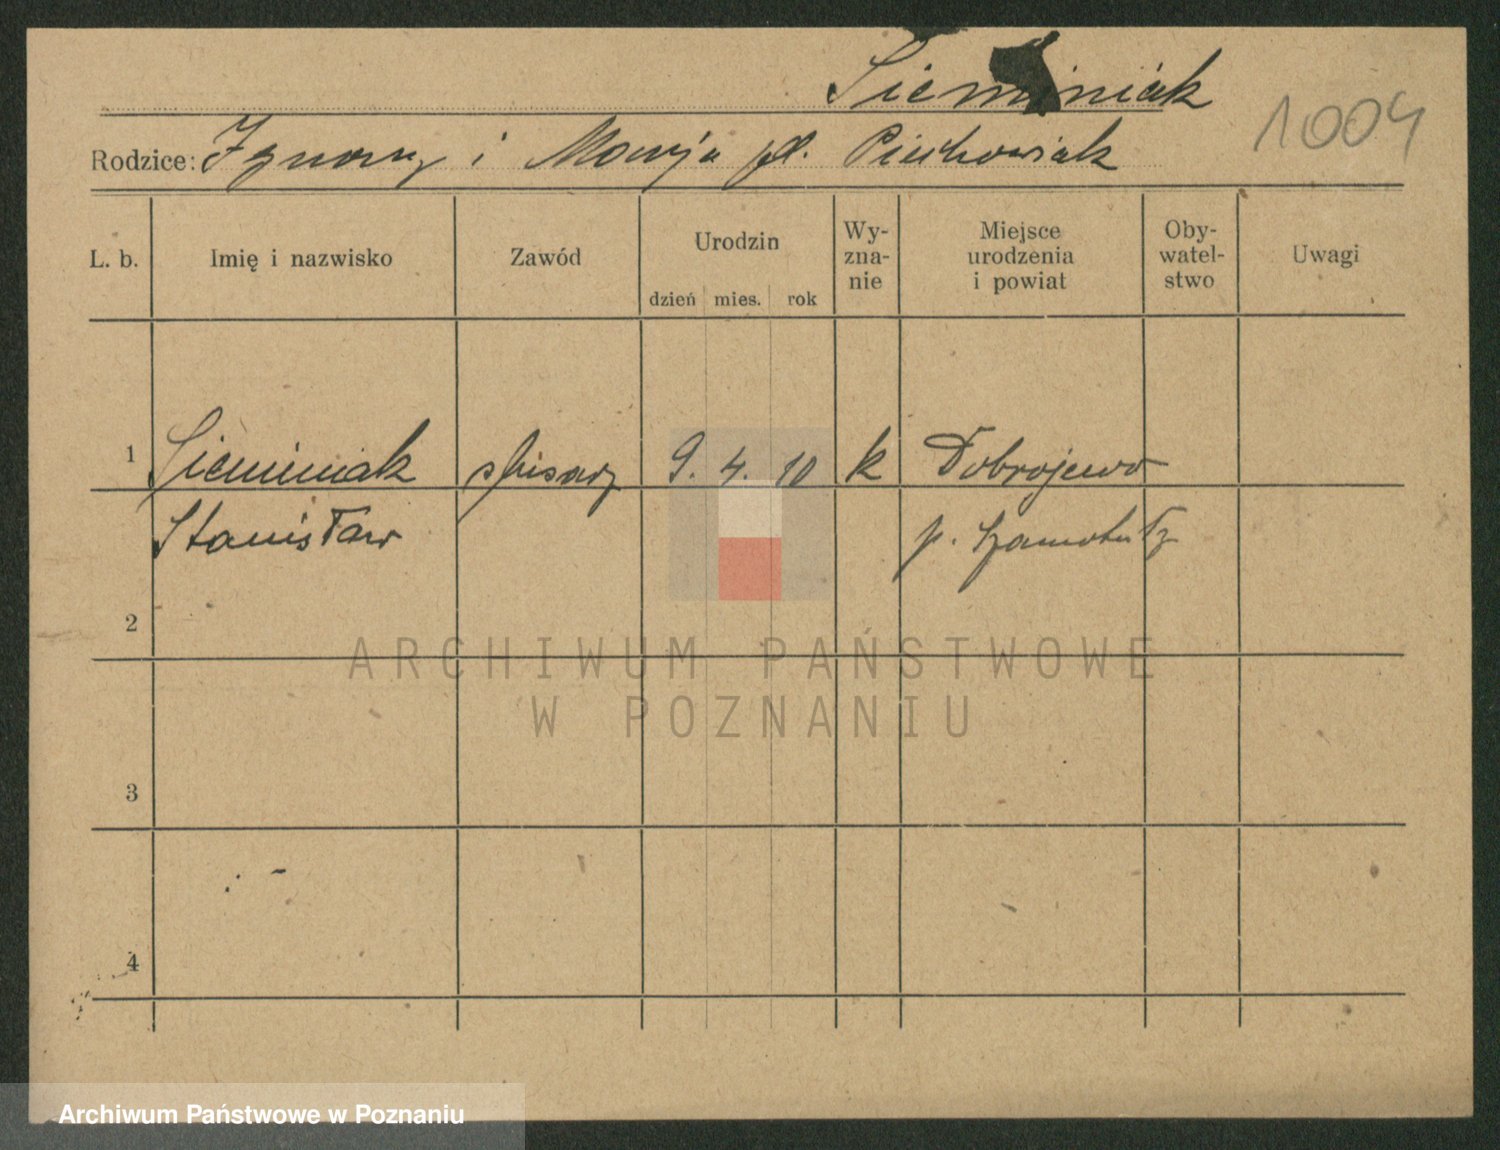 Sieminiak
1004
Rodzice: Ignacy i Marja fd. Piechowiak
L. b. Imię i nazwisko Zawód Urodzin dzień mies. rok Wy- zna- nie Miejsce urodzenia i powiat Oby- watel- stwo Uwagi
1 Sieminiak 9. 4. 10 k Dobrojewo
Stanisław p. Szamotuły
2
ARCHIWUM PAŃSTWOWE
W POZNANIU
3
4
Archiwum Państwowe w Poznaniu